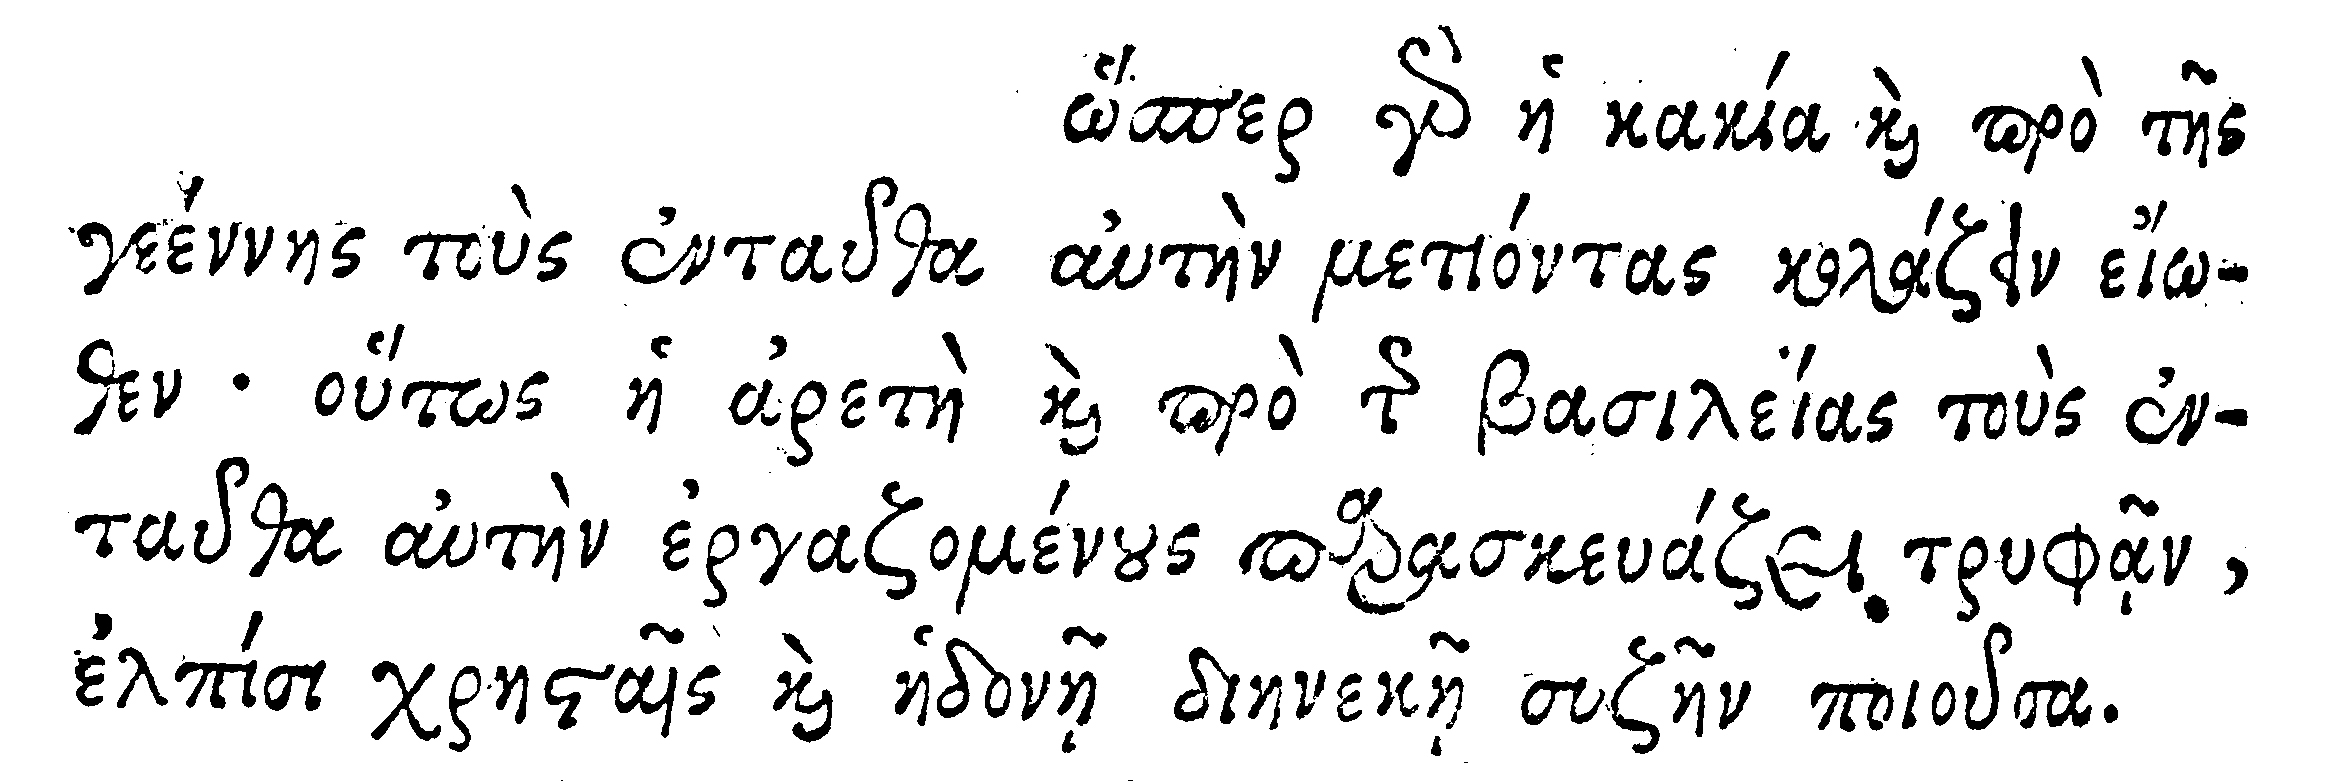 ὥσπερ γὰρ ἡ κακία καὶ πρὸ τῆς
γεέννης τοὺς ἐνταῦθα αὐτὴν μετιόντας κολάζειν εἴω-
θεν · οὕτως ἡ ἀρετὴ καὶ πρὸ τῆς βασιλείας τοὺς ἐν-
ταῦθα αὐτὴν ἐργαζομένους παρασκευάζει τρυφᾷν,
ἐλπίσι χρησταῖς καὶ ἡδονῇ διηνεκῇ συζῆν ποιοῦσα.